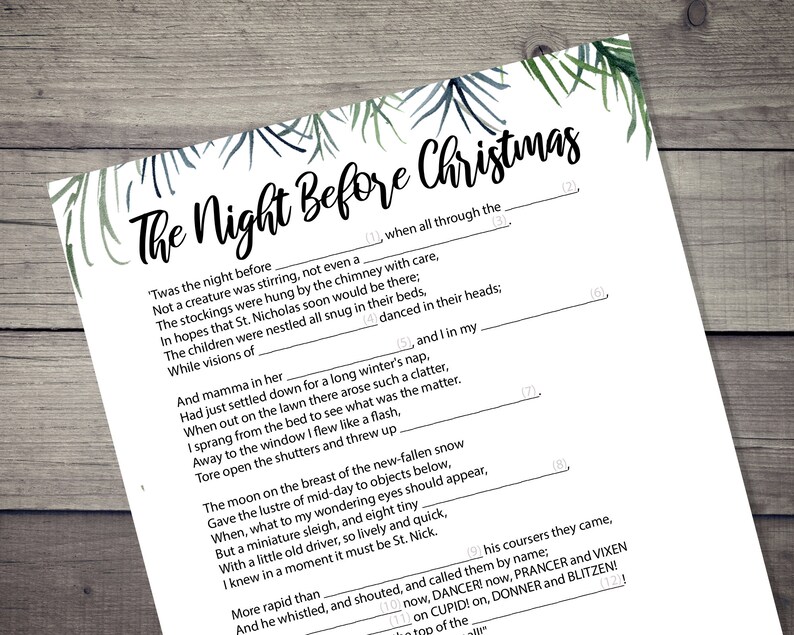 The Night Before Christmas
'Twas the night before ____________(1), when all through the ____________(2),
Not a creature was stirring, not even a ____________(3).
The stockings were hung by the chimney with care,
In hopes that St. Nicholas soon would be there;
The children were nestled all snug in their beds,
While visions of ____________(4) danced in their heads;
And mamma in her ____________(5), and I in my ____________(6),
Had just settled down for a long winter's nap,
When out on the lawn there arose such a clatter,
I sprang from the bed to see what was the matter.
Away to the window I flew like a flash,
Tore open the shutters and threw up ____________(7).
The moon on the breast of the new-fallen snow
Gave the lustre of mid-day to objects below,
When, what to my wondering eyes should appear,
But a miniature sleigh, and eight tiny ____________(8),
With a little old driver, so lively and quick,
I knew in a moment it must be St. Nick.
More rapid than ____________(9) his coursers they came,
And he whistled, and shouted, and called them by name;
____________(10) now, DANCER! now, PRANCER and VIXEN
____________(11) on CUPID! on, DONNER and BLITZEN!
the top of the ____________(12)!
all!"